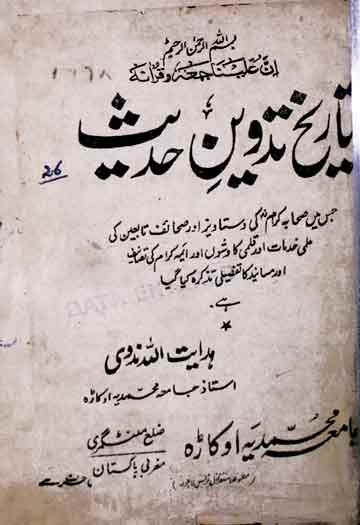 بسم اللہ الرحمٰن الرحیم
۱۶۶۸
اِنَّ عَلَیْنَا جَمْعَہٗ وَقُرْاٰنَہٗ
تاریخ تدوینِ حدیث
26
جس میں صحابہ کرامؓ کی دستاویز اور صحائف تابعین کی
علمی خدمات اور قلمی کاوشوں اور ایمہ کرام کی تصانیف
اور مسانید کا تفصیلی تذکرہ کیا گیا
ہے۔
ہدایت اللہ ندوی
استاذ جامعہ محمدیہ اوکاڑہ
جامعہ محمدیہ اوکاڑہ
ضلع منٹگمری
مغربی پاکستان